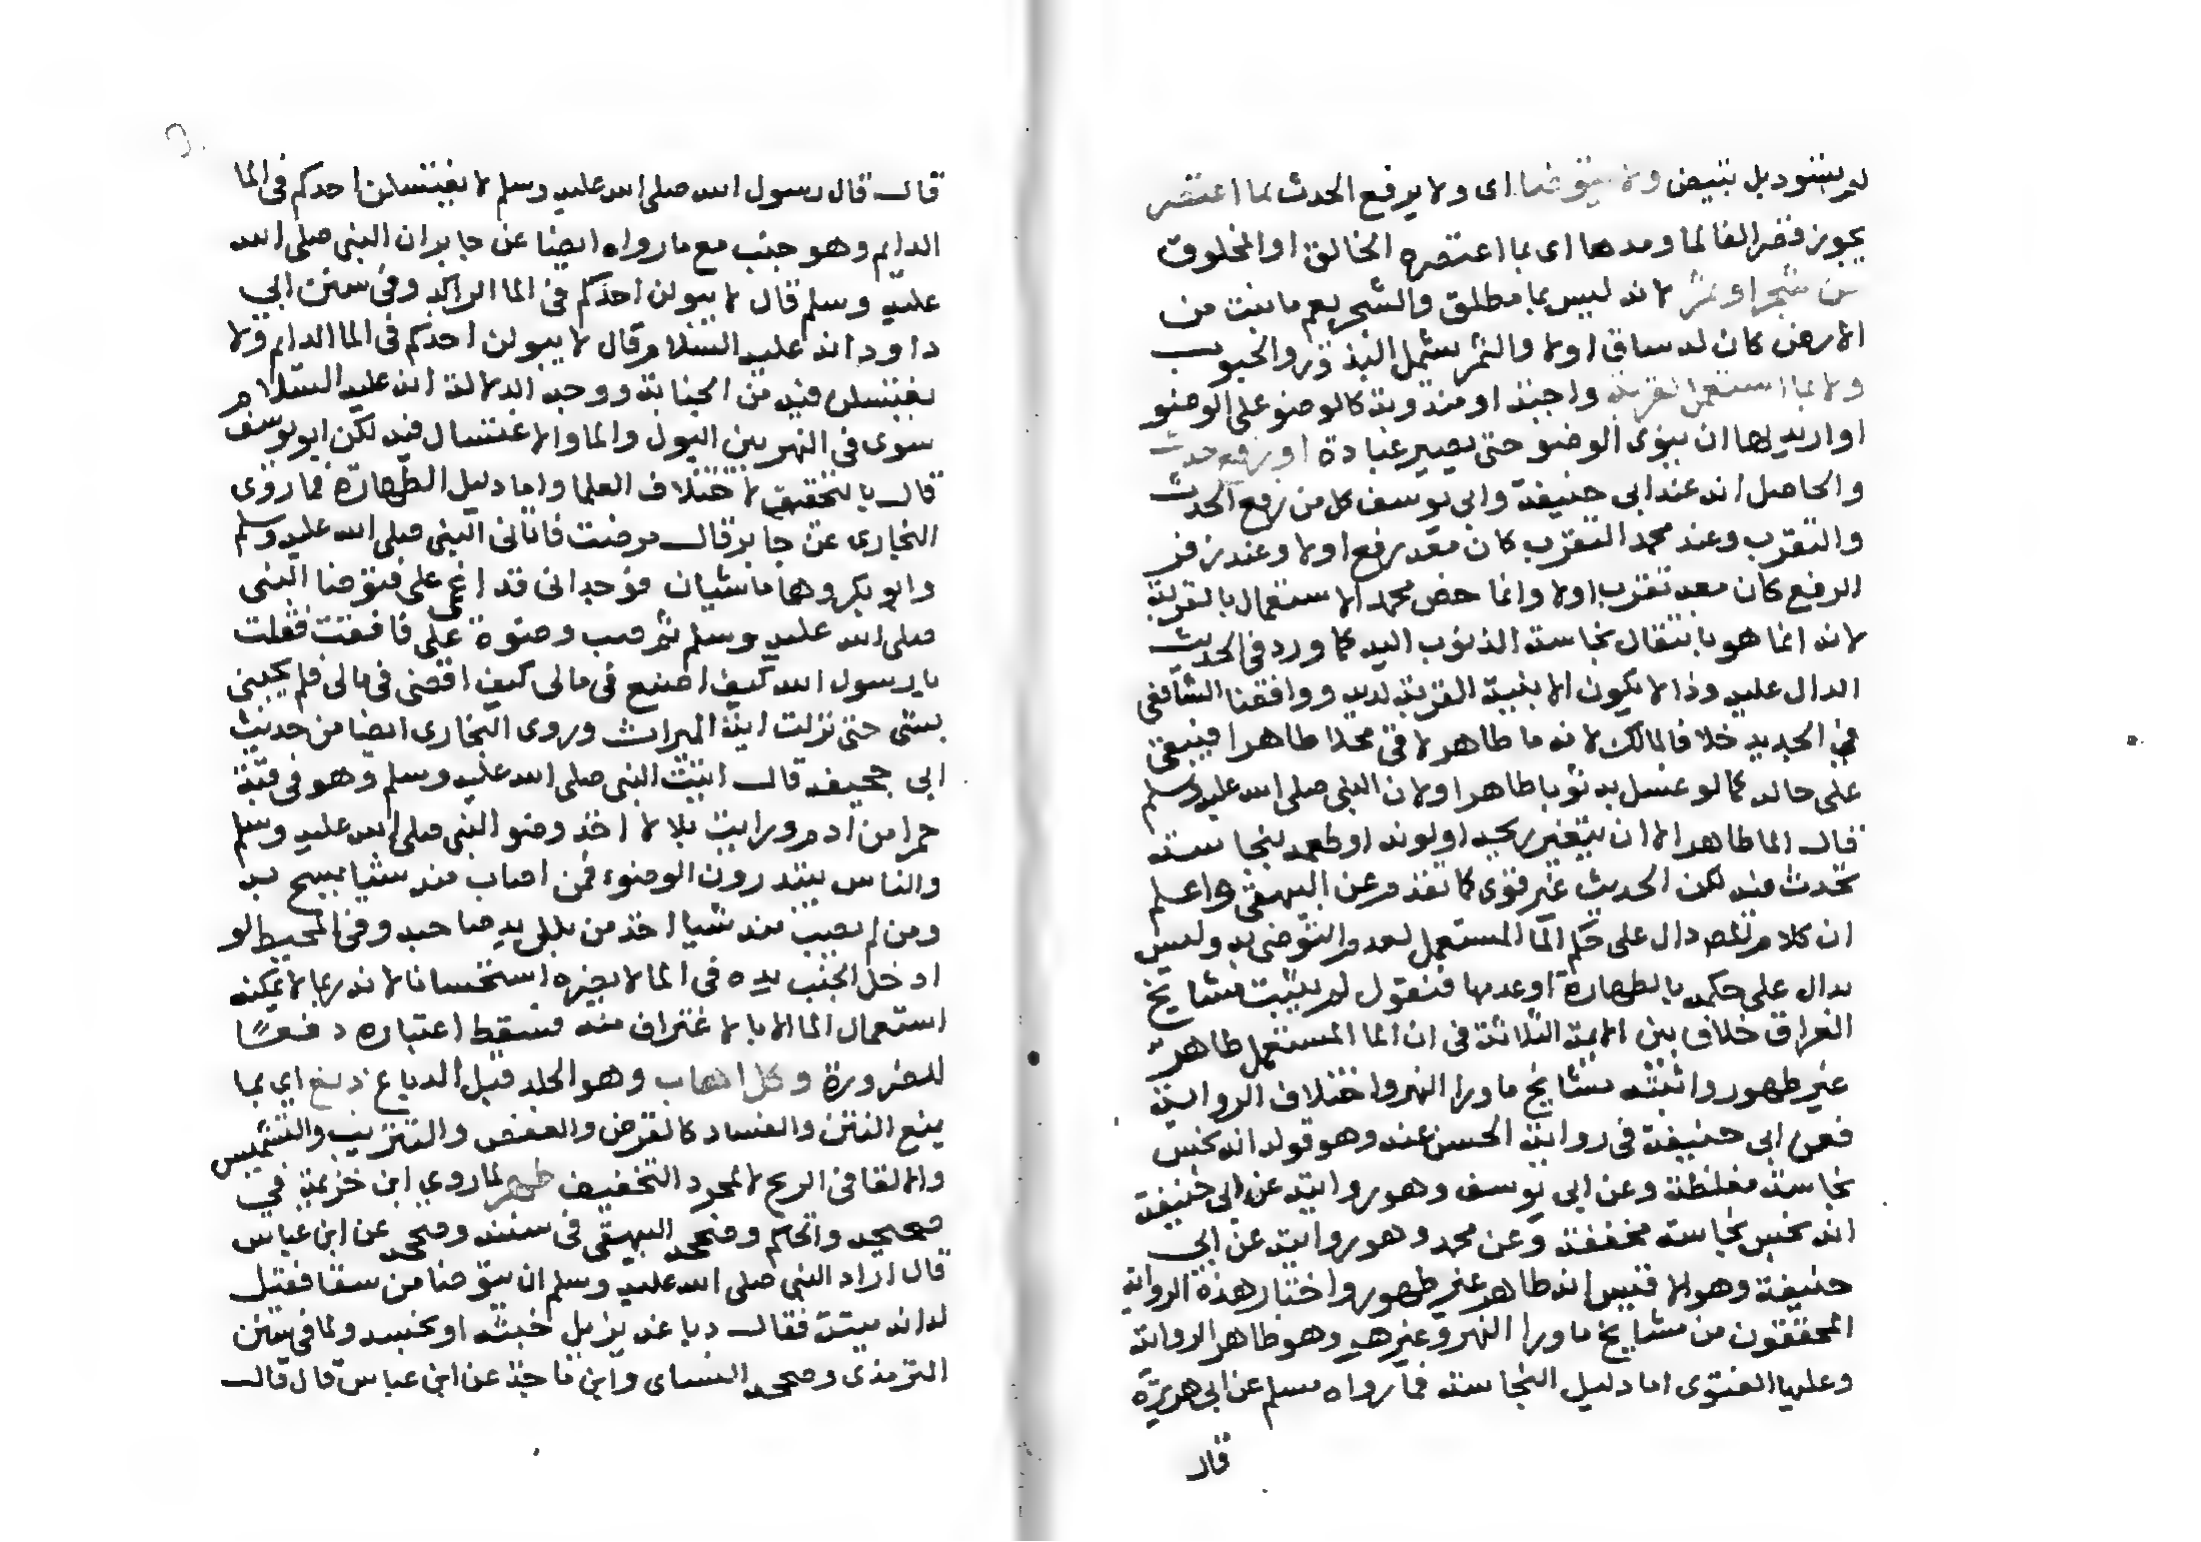 لم يسود بل تبيض ولا يتوضا اى ولا يرفع الحدث بما اعتصر
يجوز فقرا لفا لما ومدها اى بما اعتصره الخالق او المخلوق
من شجر او ثمر لانه ليس بما مطلق والشجر يعم ما ينبت من
الارض كان له ساق اولا والثمر يشمل البذور والحبوب
ولا بما استعمل لقربة واجبة او مندوبة كالوضو على الوضو
او اريد لها ان ينوى الوضو حتى يصير عبادة او رفع حدث
والحاصل انه عند ابى حنيفة وابى يوسف كل من رفع الحدث
والتقرب وعند محمد التقرب كان معه رفع اولا وعند زفر
الرفع كان معه تقرب اولا وانما خص محمد الاستعمال بالقربة
لانه انما هو بانتقال نجاسة الذنوب اليه كما ورد فى الحديث
الدال عليه وذا لا يكون الا بنية القربة لديه ووافقنا الشافعى
فى الجديد خلافا لمالك لانه ما طاهر لاقى محلا طاهرا فيبقى
على حاله كما لو غسل به ثوبا طاهرا ولان النبى صلى الله عليه وسلم
قال الما طاهر الا ان يتغير ريحه او لونه او طعمه بنجاسة
تحدث فيه لكن الحديث غير قوى كما تقدم عن البيهقى واعلم
ان كلام المص دال على حكم الما المستعمل لعدم التوضى به وليس
بدال على حكمه بالطهارة او عدمها فنقول لم يثبت مشايخ
العراق خلاف بين الايمة الثلاثة فى ان الما المستعمل طاهر
غير طهور واثبته مشايخ ما ورا النهر واختلاف الرواية
فعن ابى حنيفة فى رواية الحسن عنه وهو قوله انه نجس
نجاسة مغلظة وعن ابى يوسف وهو رواية عن ابى حنيفة
انه نجس نجاسة مخففة وعن محمد وهو رواية عن ابى
حنيفة وهو الاقيس انه طاهر غير طهور واختار هذة الرواية
المحققون من مشايخ ما ورا النهر وغيرهم وهو ظاهر الرواية
وعليها الفتوى اما دليل النجاسة فما رواه مسلم عن ابى هريرة
قال
قال قال رسول الله صلى الله عليه وسلم لا يغتسلن احدكم فى الما
الدايم وهو جنب مع ما رواه ايضا عن جابر ان النبى صلى الله
عليه وسلم قال لا يبولن احدكم فى الما الراكد وفى سنن ابى
داود انه عليه السلام قال لا يبولن احدكم فى الما الدايم ولا
يغتسلن فيه من الجنابة ووجه الدلالة انه عليه السلام
سوى فى النهى بين البول والما والاغتسال فيه لكن ابو يوسف
قال بالتخفيف لاختلاف العلما واما دليل الطهارة فما روى
البخارى عن جابر قال مرضت فاتانى النبى صلى الله عليه وسلم
وابو بكر وهما ماشيان فوجدانى قد اغمى على فتوضا النبى
صلى الله عليه وسلم ثم صب وضوة على فافقت فقلت
يا رسول الله كيف اصنع فى مالى كيف اقضى فى مالى فلم يجبنى
بشى حتى نزلت اية الميراث وروى البخارى ايضا من حديث
ابى جحيفه قال اتيت النبى صلى الله عليه وسلم وهو فى قبة
حمرا من ادم ورايت بلالا اخذ وضو النبى صلى الله عليه وسلم
والناس يبتدرون الوضوء فمن اصاب منه شيا يمسح به
ومن لم يصب منه شيا اخذ من بلل يد صاحبه وفى المحيط لو
ادخل الجنب يده فى الما لا يجزه استحسانا لانه ربما لا يمكنه
استعمال الما الا بالاغتراف منه فسقط اعتباره دفعا
للضرورة وكل اهاب وهو الجلد قبل الدباغ دبغ اي بما
يمنع النتن والفساد كالقرض والعفص والتتريب والتشميس
والالقا فى الريح لا لمجرد التخفيف طهر لما روي ابن خزيمة في
صحيحه والحاكم وصححه البيهقى فى سننه وصححه عن ابن عباس
قال اراد النبى صلى الله عليه وسلم ان يتوضا من سقا فقيل
له انه ميتة فقال دباغه يزيل خبثه او نجسه ولما فى سنن
الترمذى وصححه النساى وابن ماجة عن ابن عباس قال قال